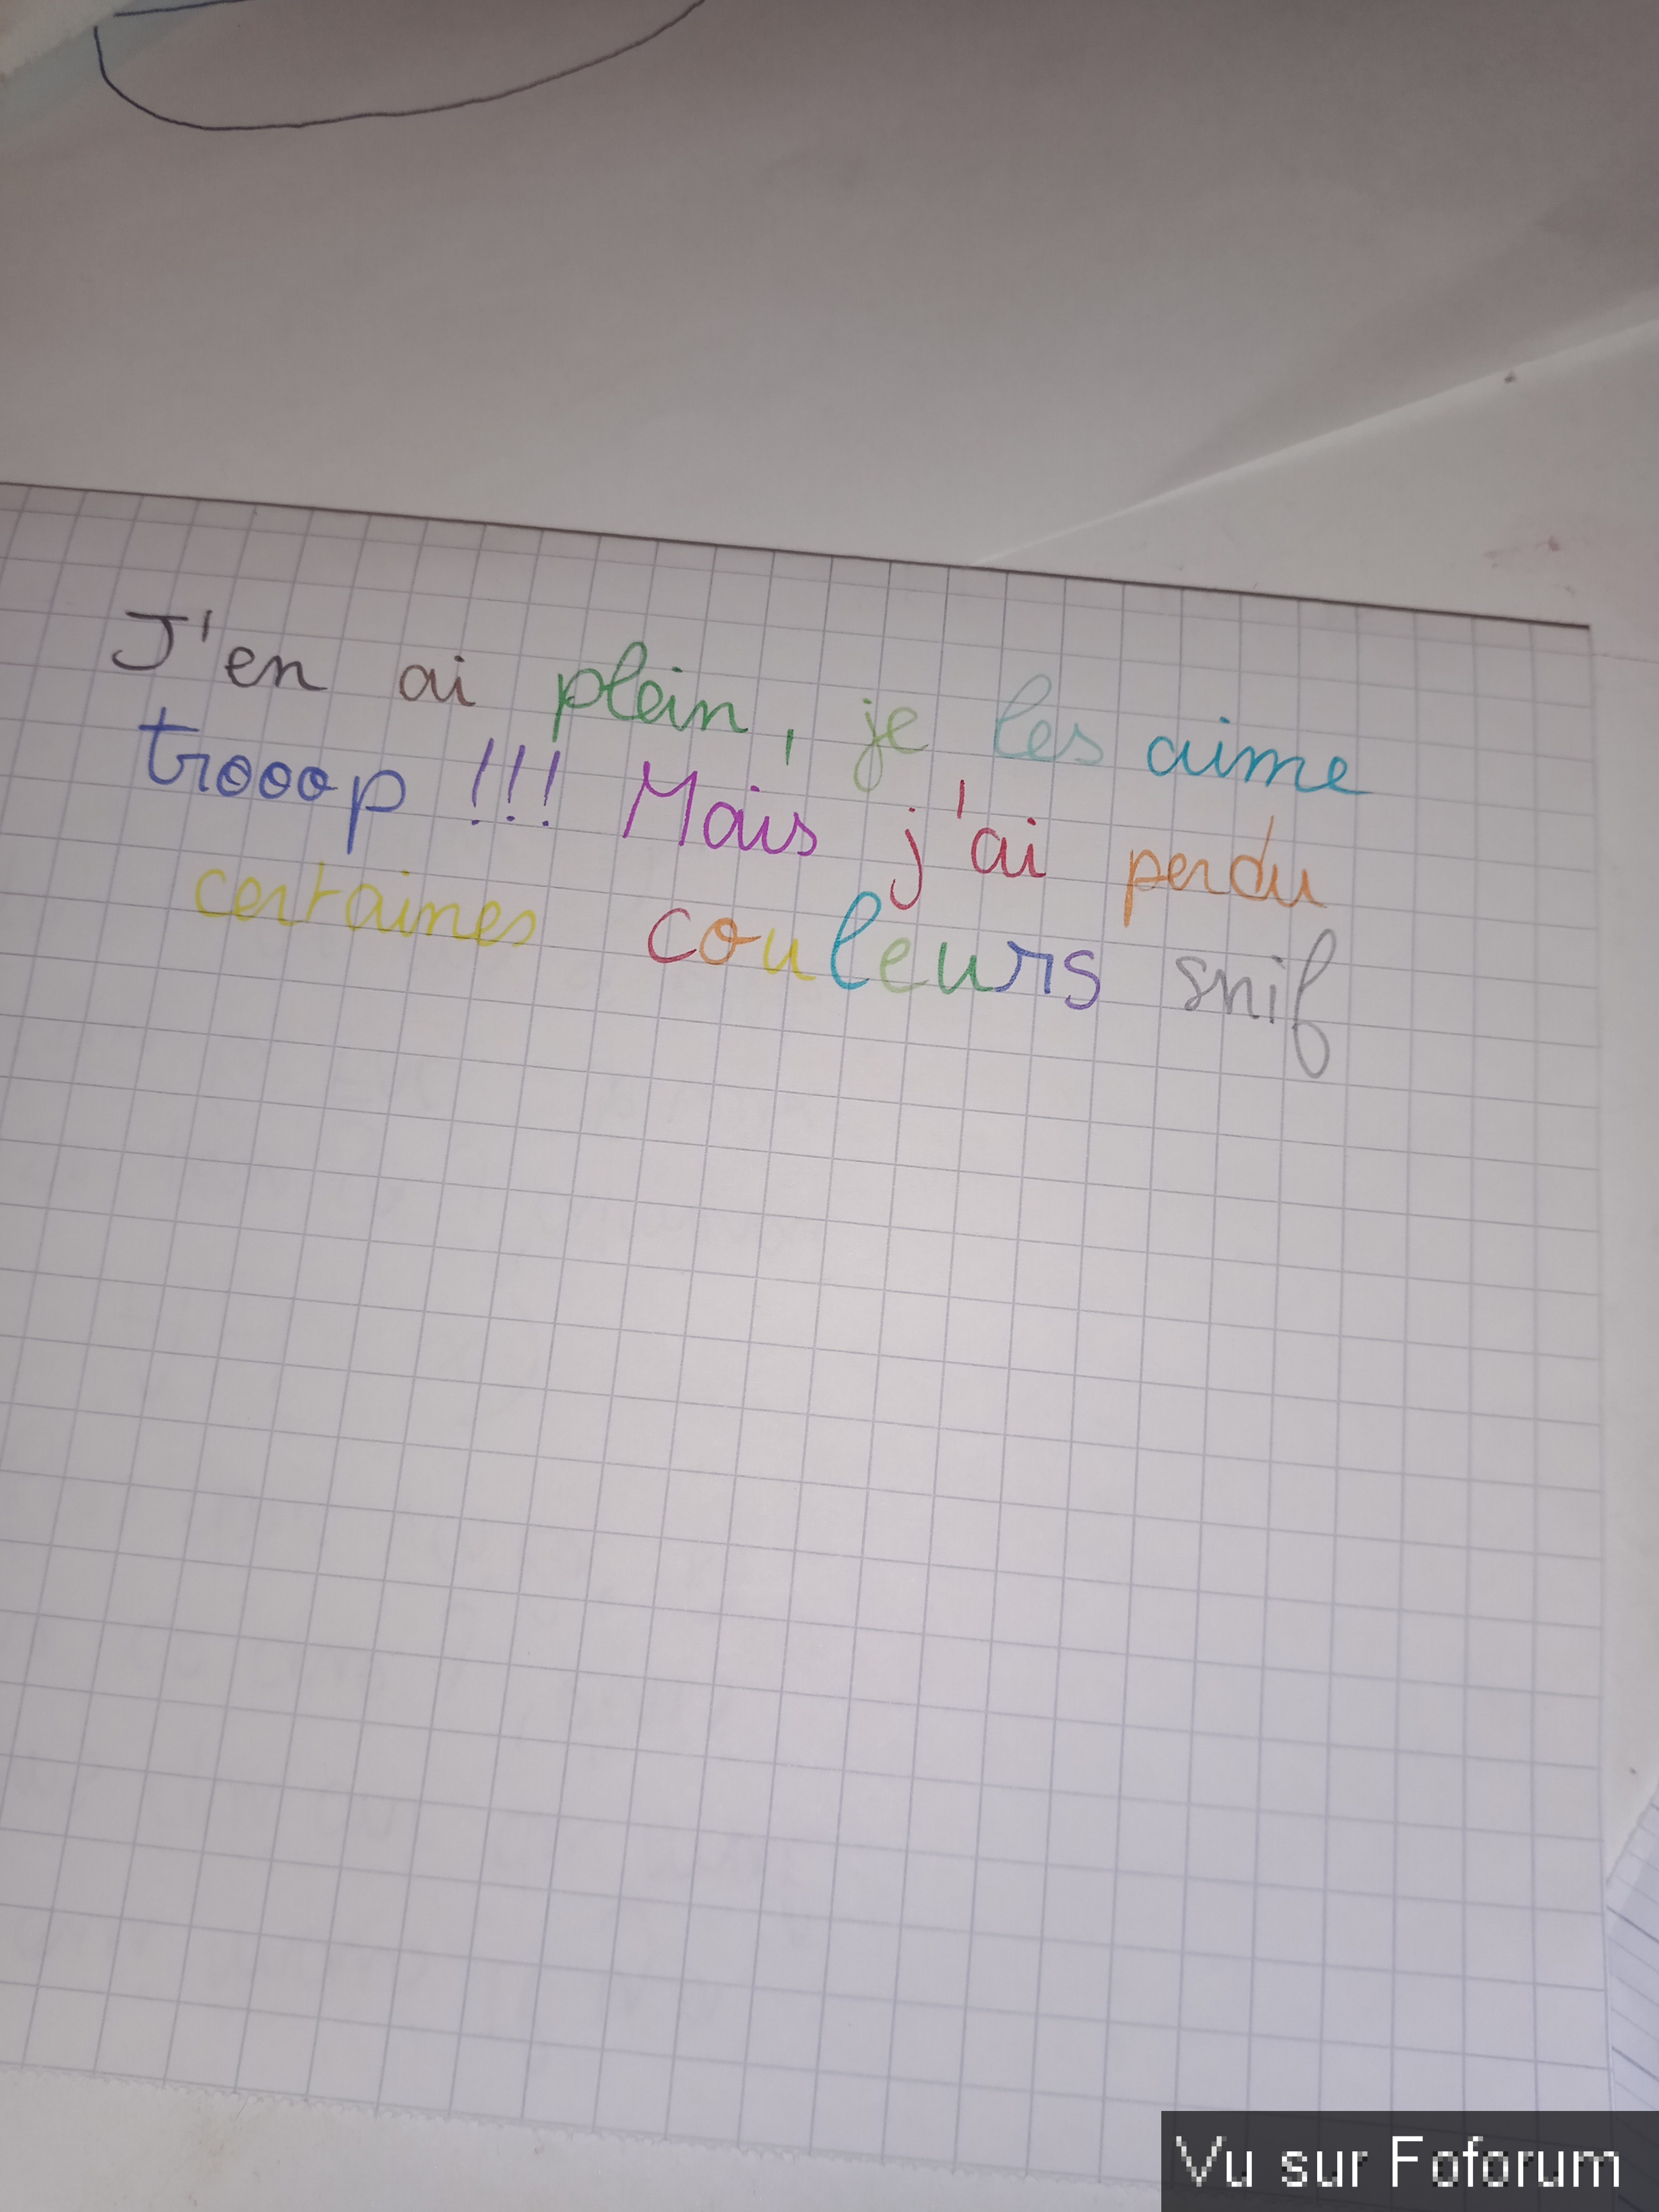 J'en ai plein, je les aime
trooop !!! Mais j'ai perdu
certaines couleurs snif
Vu sur Foforum